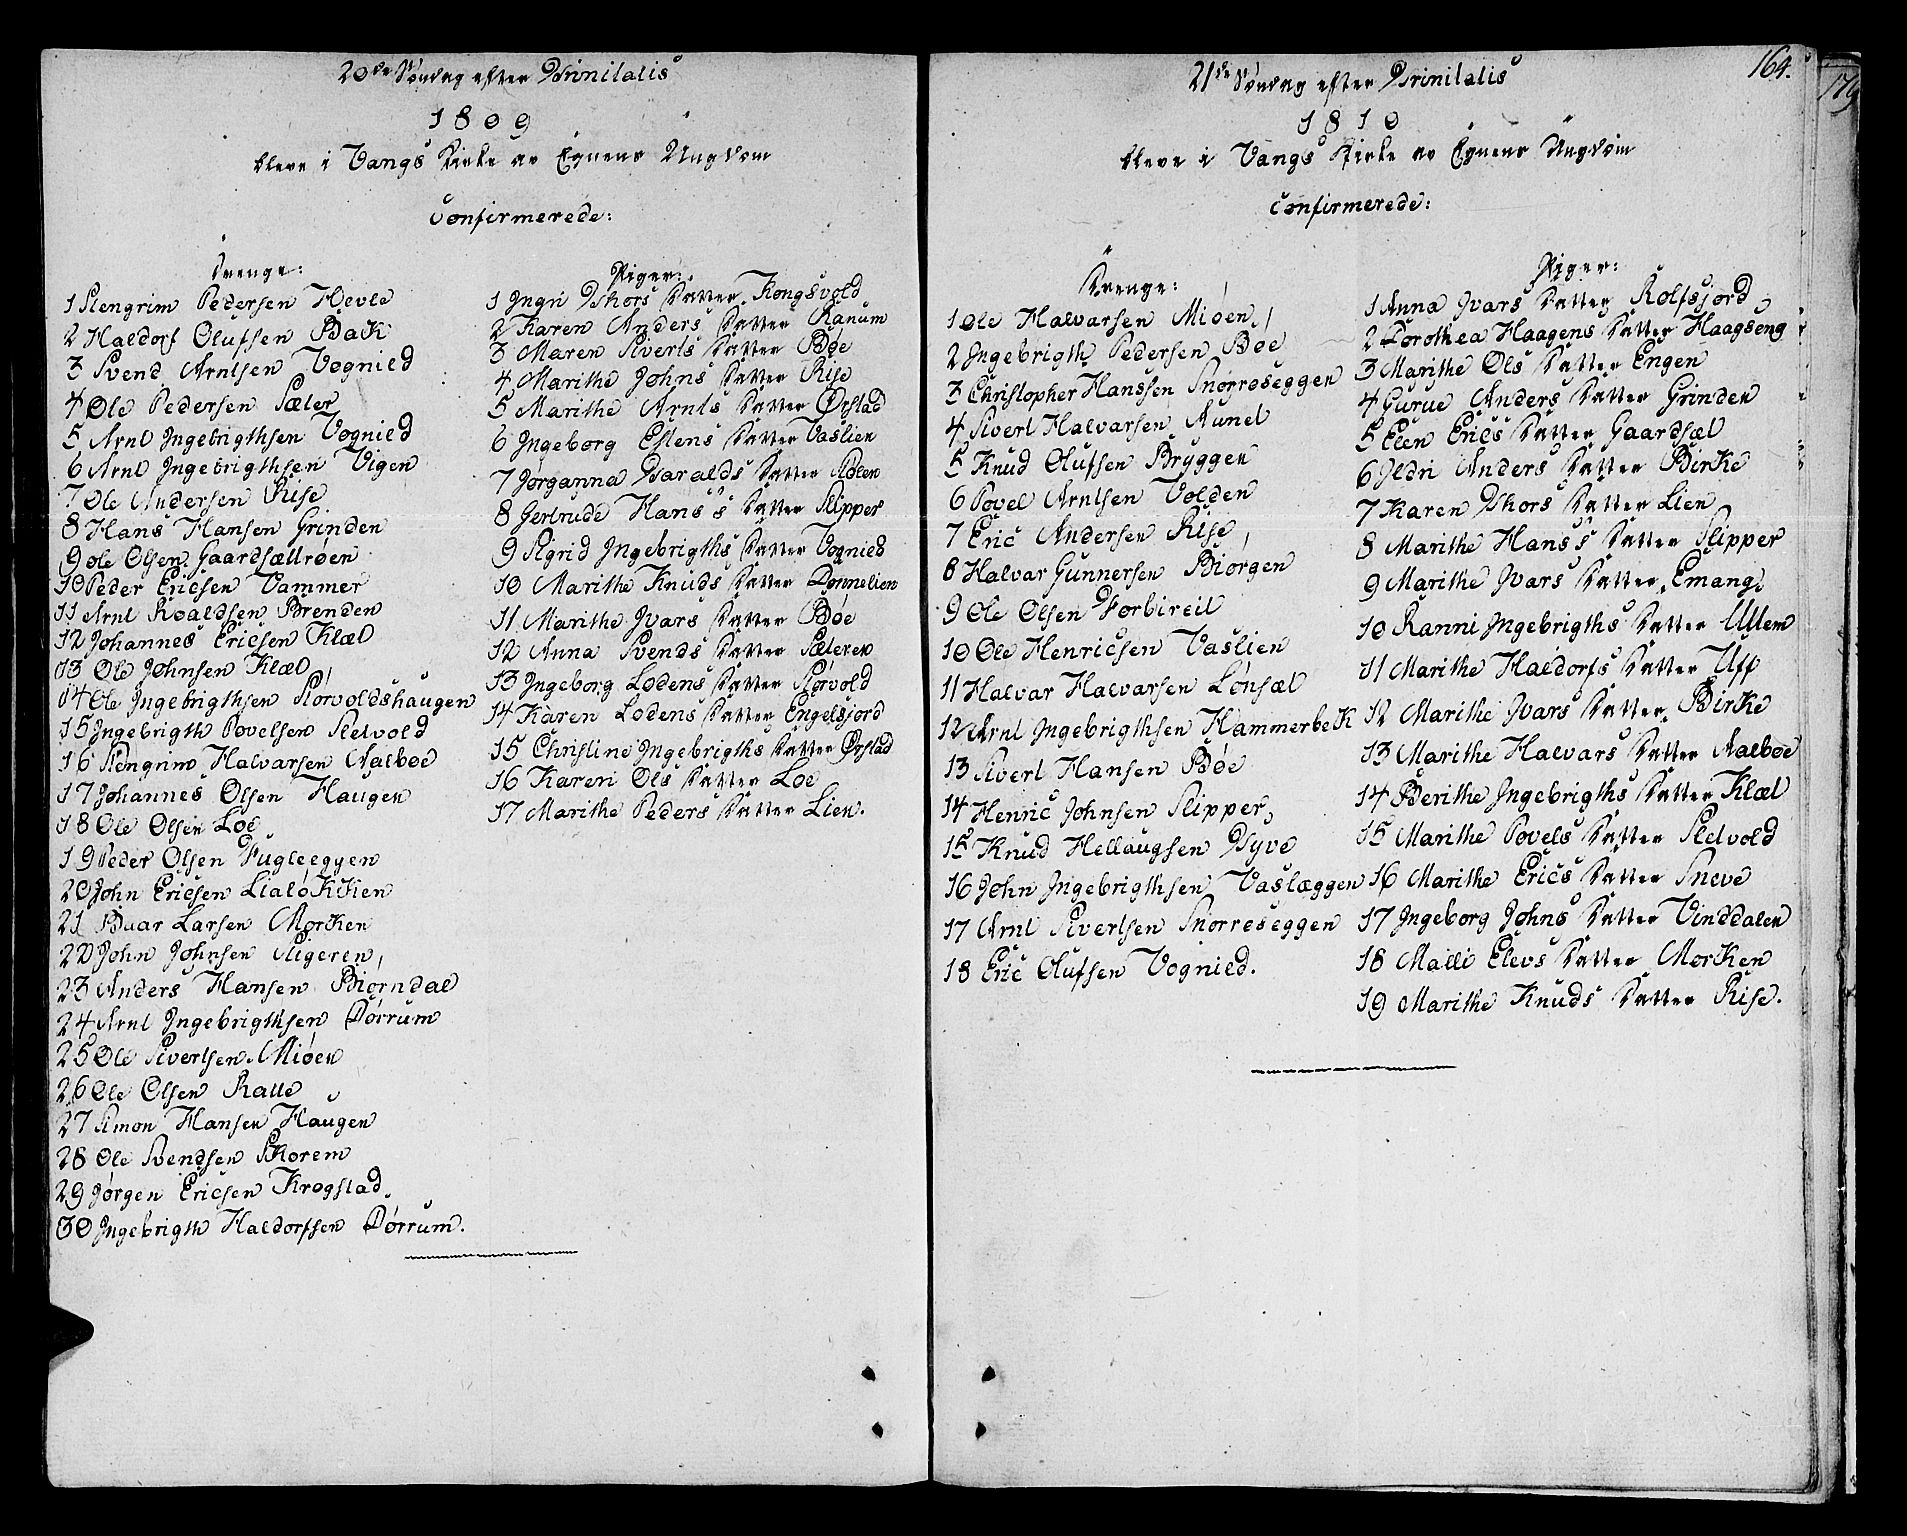 20de Søndag efter Trinitatis
1809
bleve i Vangs Kirke av Egnens Ungdom
Confirmerede:
Drenge:
1 Stengrim Pedersen Hevle
2 Haldorf Olufsen Bak
3 Svend Arntsen Vognild
4 Ole Pedersen Sæter
5 Arnt Ingebrigthsen Vognild
6 Arnt Ingebrigthsen Vigen
7 Ole Andersen Rise
8 Hans Hansen Grinden
9 Ole Olsen Gaardsættrøen
10 Peder Ericsen Vammer
11 Arnt Roaldsen Brenden
12 Johannes Ericsen Klæt
13 Ole Johnsen Klæt
14 Ole Ingebrigthsen Storvoldshaugen
15 Ingebrigth Povelsen Sletvold
16 Stengrim Halvarsen Aalboe
17 Johannes Olsen Haugen
18 Ole Olsen Loe
19 Peder Olsen Fugleegyen
20 John Ericsen Lialøkkien
21 Buar Larsen Morken
22 John Johnsen Stigeren
23 Anders Hansen Biørndal
24 Arnt Ingebrigthsen Dørrum
25 Ole Sivertsen Miøen
26 Ole Olsen Ralle
27 Simon Hansen Haugen
28 Ole Svendsen Skorem
29 Jørgen Ericsen Krogstad
30 Ingebrigth Haldorfsen Dørrum.
Piger:
1 Ingri Thors Datter Kongsvold
2 Karen Anders Datter Ranum
3 Maren Siverts Datter Bøe
4 Marithe Johns Datter Rise
5 Marithe Arnts Datter Ørstad
6 Ingeborg Estens Datter Vaslien
7 Jørganna Haralds Datter Stølen
8 Gertrude Hans's Datter Slipper
9 Sigrid Ingebrigths Datter Vognild
10 Marithe Knuds Datter Donnelien
11 Marithe Ivars Datter Bøe
12 Anna Svends Datter Sæteren
13 Ingeborg Lodens Datter Storvold
14 Karen Lodens Datter Engelsjord
15 Christine Ingebrigths Datter Ørstad
16 Karen Ols Datter Loe
17 Marithe Peders Datter Lien.
164.
179
21de Søndag efter Trinitatis
1810
bleve i Vangs Kirke av Egnens Ungdom
Confirmerede:
Drenge:
1 Ole Halvarsen Miøen
2 Ingebrigth Pedersen Bøe
3 Christopher Hanssen Snorroseggen
4 Sivert Halvarsen Aunet
5 Knud Olufsen Bryggen
6 Povel Arntsen Volden
7 Eric Andersen Rise
8 Halvar Gunnersen Biørgen
9 Ole Olsen Forbireit
10 Ole Henricsen Vaslien
11 Halvar Halvarsen Lønsæt
12 Arnt Ingebrigthsen Hammerbek
13 Sivert Hansen Bøe
14 Henric Johnsen Slipper
15 Knud Hellaugsen Dyve
16 John Ingebrigthsen Vaslæggen
17 Arnt Sivertsen Snorreseggen
18 Eric Olufsen Vognild.
Piger:
1 Anna Ivars Datter Rolfsjord
2 Dorothea Haagens Datter Haagseng
3 Marithe Ols Datter Engen
4 Gurue Anders Datter Grinden
5 Elen Erics Datter Gaardsæt
6 Ildri Anders Datter Birke
7 Karen Thors Datter Lien
8 Marithe Hans's Datter Slipper
9 Marithe Ivars Datter Emang
10 Ranni Ingebrigths Datter Ullem
11 Marithe Haldorfs Datter Uff
12 Marithe Ivars Datter Birke
13 Marithe Halvars Datter Aalboe
14 Berithe Ingebrigths Datter Klæt
15 Marithe Povels Datter Sletvold
16 Marithe Erics Datter Sneve
17 Ingeborg Johns Datter Vinddalen
18 Malli Elevs Datter Morken
19 Marithe Knuds Datter Rise.